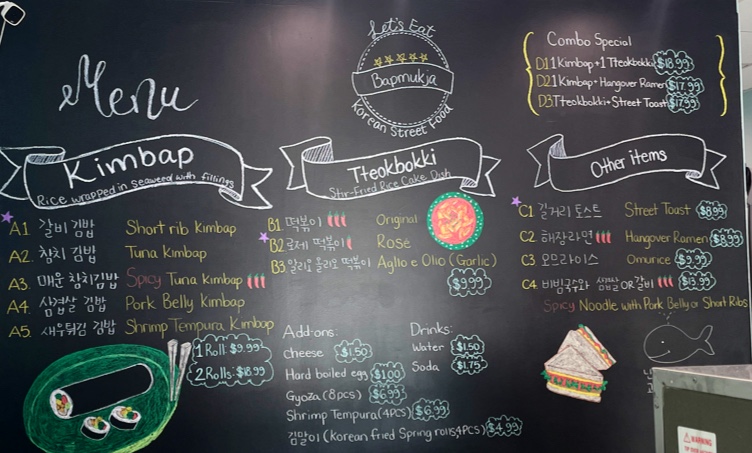 Let's Eat
Bapmukja
Korean Street Food
Menu
Combo Special
D1 1 Kimbap + 1 Tteokbokki $18.99
D2 1 Kimbap + Hangover Ramen $17.99
D3 Tteokbokki + Street Toast $17.99
Kimbap
Rice wrapped in seaweed with fillings
A1. 갈비 김밥 Short rib Kimbap
A2. 참치 김밥 Tuna Kimbap
A3. 매운 참치김밥 Spicy Tuna Kimbap
A4. 삼겹살 김밥 Pork Belly Kimbap
A5. 새우튀김 김밥 Shrimp Tempura Kimbap
1 Roll: $9.99
2 Rolls: $18.99
Tteokbokki
Stir-Fried Rice Cake Dish
B1. 떡볶이 Original
B2. 로제 떡볶이 Rosé
B3. 알리오 올리오 떡볶이 Aglio e Olio (Garlic)
$9.99
Add-ons:
cheese $1.50
Hard boiled egg $1.00
Gyoza (8pcs) $6.99
Shrimp Tempura (4PCS) $6.99
김말이 (Korean fried Spring rolls, 4PCS) $4.99
Drinks:
Water $1.50
Soda $1.75
Other items
C1 길거리 토스트 Street Toast $8.99
C2. 해장라면 Hangover Ramen $8.99
C3 오므라이스 Omurice $9.99
C4. 비빔국수와 삼겹살 OR 갈비
Spicy Noodle with Pork Belly or Short Ribs
WARNING